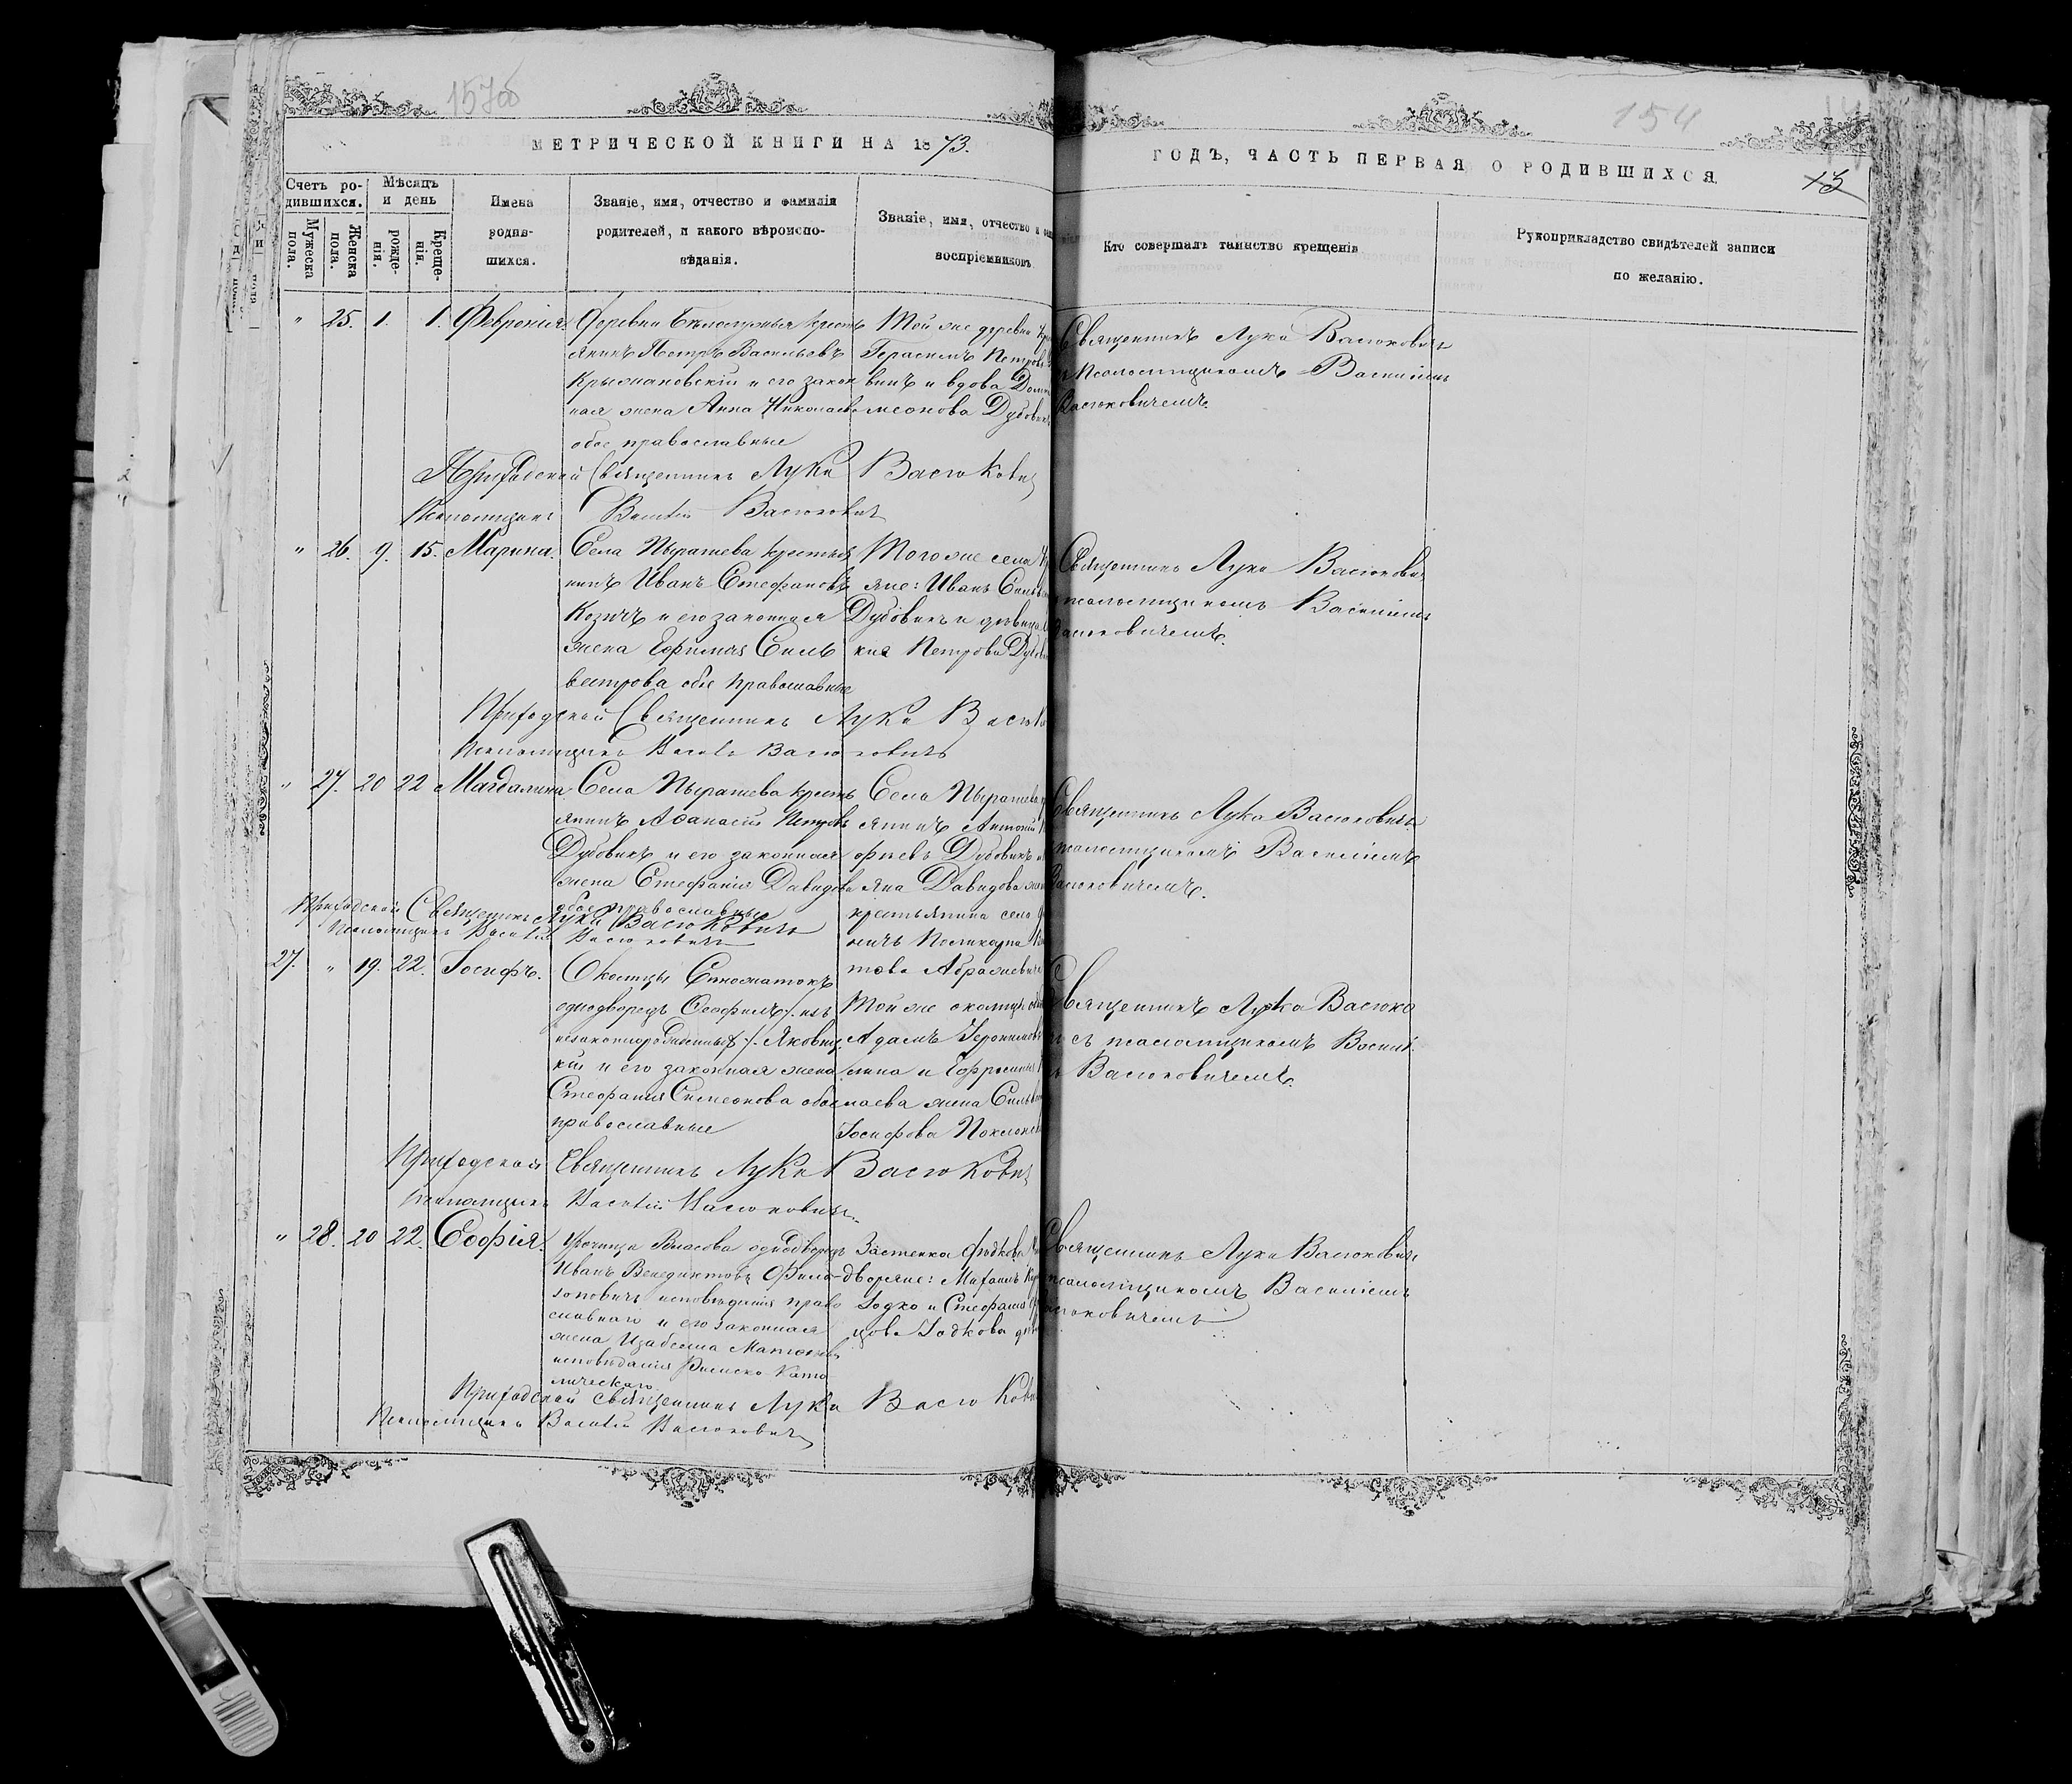 157об
154
МЕТРИЧЕСКОЙ КНИГИ НА 1873.
ГОДЪ, ЧАСТЬ ПЕРВАЯ О РОДИВШИХСЯ.
13
Счетъ родившихся.
Мужеска пола.
Женска пола.
Мѣсяцъ и день
рожденія.
Крещенія.
Имена
родив-
шихся.
Званіе, имя, отчество и фамилія
родителей, и какого вѣроиспо-
вѣданія.
Званіе, имя, отчество и
воспріемниковъ
Кто совершалъ таинство крещенія
Рукоприкладство свидѣтелей записи
по желанію.
" 25. 1. 1. Февронія.
Деревни кресть
янинъ Петръ Васильевъ
Крыжановскій и его закон
ная жена Анна Николаева
обое православные
Той же деревни
Герасимъ Петровъ
и вдова
Дубовикъ
Священникъ Лука Васюковичъ
Псаломщикомъ Василіемъ
Васюковичемъ.
Приходской Священникъ Лука Васюкович
Псаломщикъ Василій Васюковичъ
" 26. 9. 15. Марина.
Села Пырашева крестья
нинъ Иванъ Стефановъ
Козичъ и его законная
жена Ефимія Силь
вестрова обое православные
Того же села
яне: Иванъ
Дубовикъ и дѣвица
Петрова
Священникъ Лука Васюкович
псаломщикомъ Василіемъ
Васюковичемъ.
Приходской Священникъ Лука
Псаломщикъ Василій Васюковичъ
" 27. 20 22 Магдалина
Села Пырашева кресть
янинъ Аѳанасій Петровъ
Дубовикъ и его законная
жена Стефанія Давидова
обое православные
Села Пырашева
янинъ Антоній
Дубовикъ
яна Давидова
крестьянина села
Поликарпа
Священникъ Лука Васюковичъ
псаломщикомъ Василіемъ
Васюковичемъ.
Приходской Священникъ Лука Васюковичъ
Псаломщикъ Василій Васюковичъ
27. " 19. 22. Іосифъ.
Околицы
однодворецъ Ѳеофилъ /. изъ
незаконнорожденныхъ ./
кій и его законная жена
Стефанія Симеонова обое
православные
Той же околицы
Адамъ Іеронимовъ
и Ефросинія
жена
Іосифова
Священникъ Лука Васюко
съ псаломщикомъ Василі
Васюковичемъ.
Приходской Священникъ Лука Васюкович
Псаломщикъ Василій Васюковичъ.
" 28. 20 22. Софія.
однодворецъ
Иванъ Венедиктовъ
исповѣданія право
славнаго и его законная
жена Изабелла
исповѣданія Римско Като
лическаго
Застенка
дворяне: Михаилъ
и Стефанія
Священникъ Лука Васюкович
псаломщикомъ Василіемъ
Приходской священникъ Лука Васюкович
Псаломщикъ Василій Васюковичъ